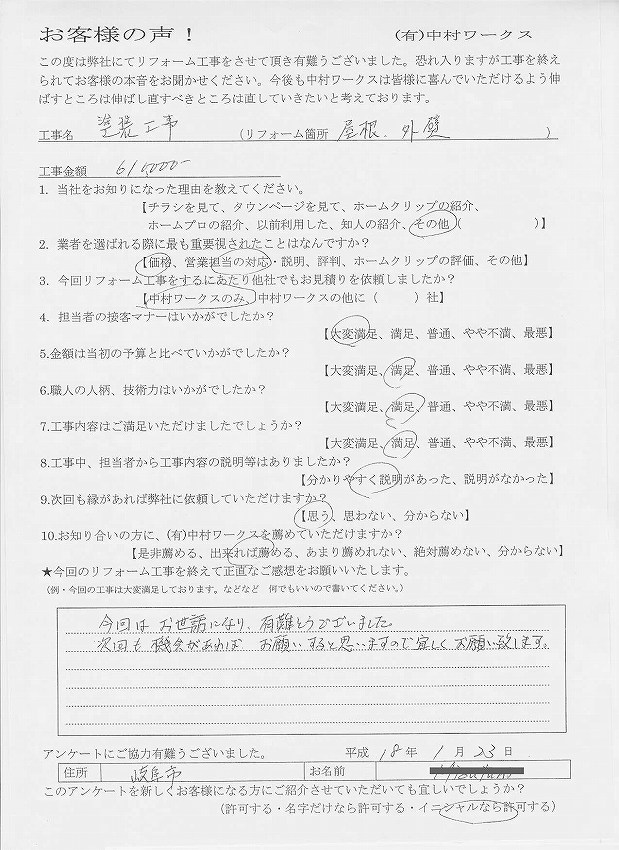 お客様の声！ (有)中村ワークス
この度は弊社にてリフォーム工事をさせて頂き有難うございました。恐れ入りますが工事を終え
られてお客様の本音をお聞かせください。今後も中村ワークスは皆様に喜んでいただけるよう伸
ばすところは伸ばし直すべきところは直していきたいと考えております。
工事名 塗装工事 (リフォーム箇所 屋根、外壁 )
工事金額 610,000-
1. 当社をお知りになった理由を教えてください。
【チラシを見て、タウンページを見て、ホームクリップの紹介、
ホームプロの紹介、以前利用した、知人の紹介、その他( )】
2. 業者を選ばれる際に最も重要視されたことはなんですか？
【価格、営業担当の対応・説明、評判、ホームクリップの評価、その他】
3. 今回リフォーム工事をするにあたり他社でもお見積りを依頼しましたか？
【中村ワークスのみ、中村ワークスの他に( )社】
4. 担当者の接客マナーはいかがでしたか？
【大変満足、満足、普通、やや不満、最悪】
5.金額は当初の予算と比べていかがでしたか？
【大変満足、満足、普通、やや不満、最悪】
6.職人の人柄、技術力はいかがでしたか？
【大変満足、満足、普通、やや不満、最悪】
7.工事内容はご満足いただけましたでしょうか？
【大変満足、満足、普通、やや不満、最悪】
8.工事中、担当者から工事内容の説明等はありましたか？
【分かりやすく説明があった、説明がなかった】
9.次回も縁があれば弊社に依頼していただけますか？
【思う、思わない、分からない】
10.お知り合いの方に、(有)中村ワークスを薦めていただけますか？
【是非薦める、出来れば薦める、あまり薦めれない、絶対薦めない、分からない】
★今回のリフォーム工事を終えて正直なご感想をお願いいたします。
(例・今回の工事は大変満足しております。などなど 何でもいいので書いてください。)
今回はお世話になり、有難とうございました。
次回も機会があれば お願いすると思いますので宜しくお願い致します。
アンケートにご協力有難うございました。 平成 18年 1月 23日
住所 岐阜市 お名前
このアンケートを新しくお客様になる方にご紹介させていただいても宜しいでしょうか？
(許可する・名字だけなら許可する・イニシャルなら許可する)